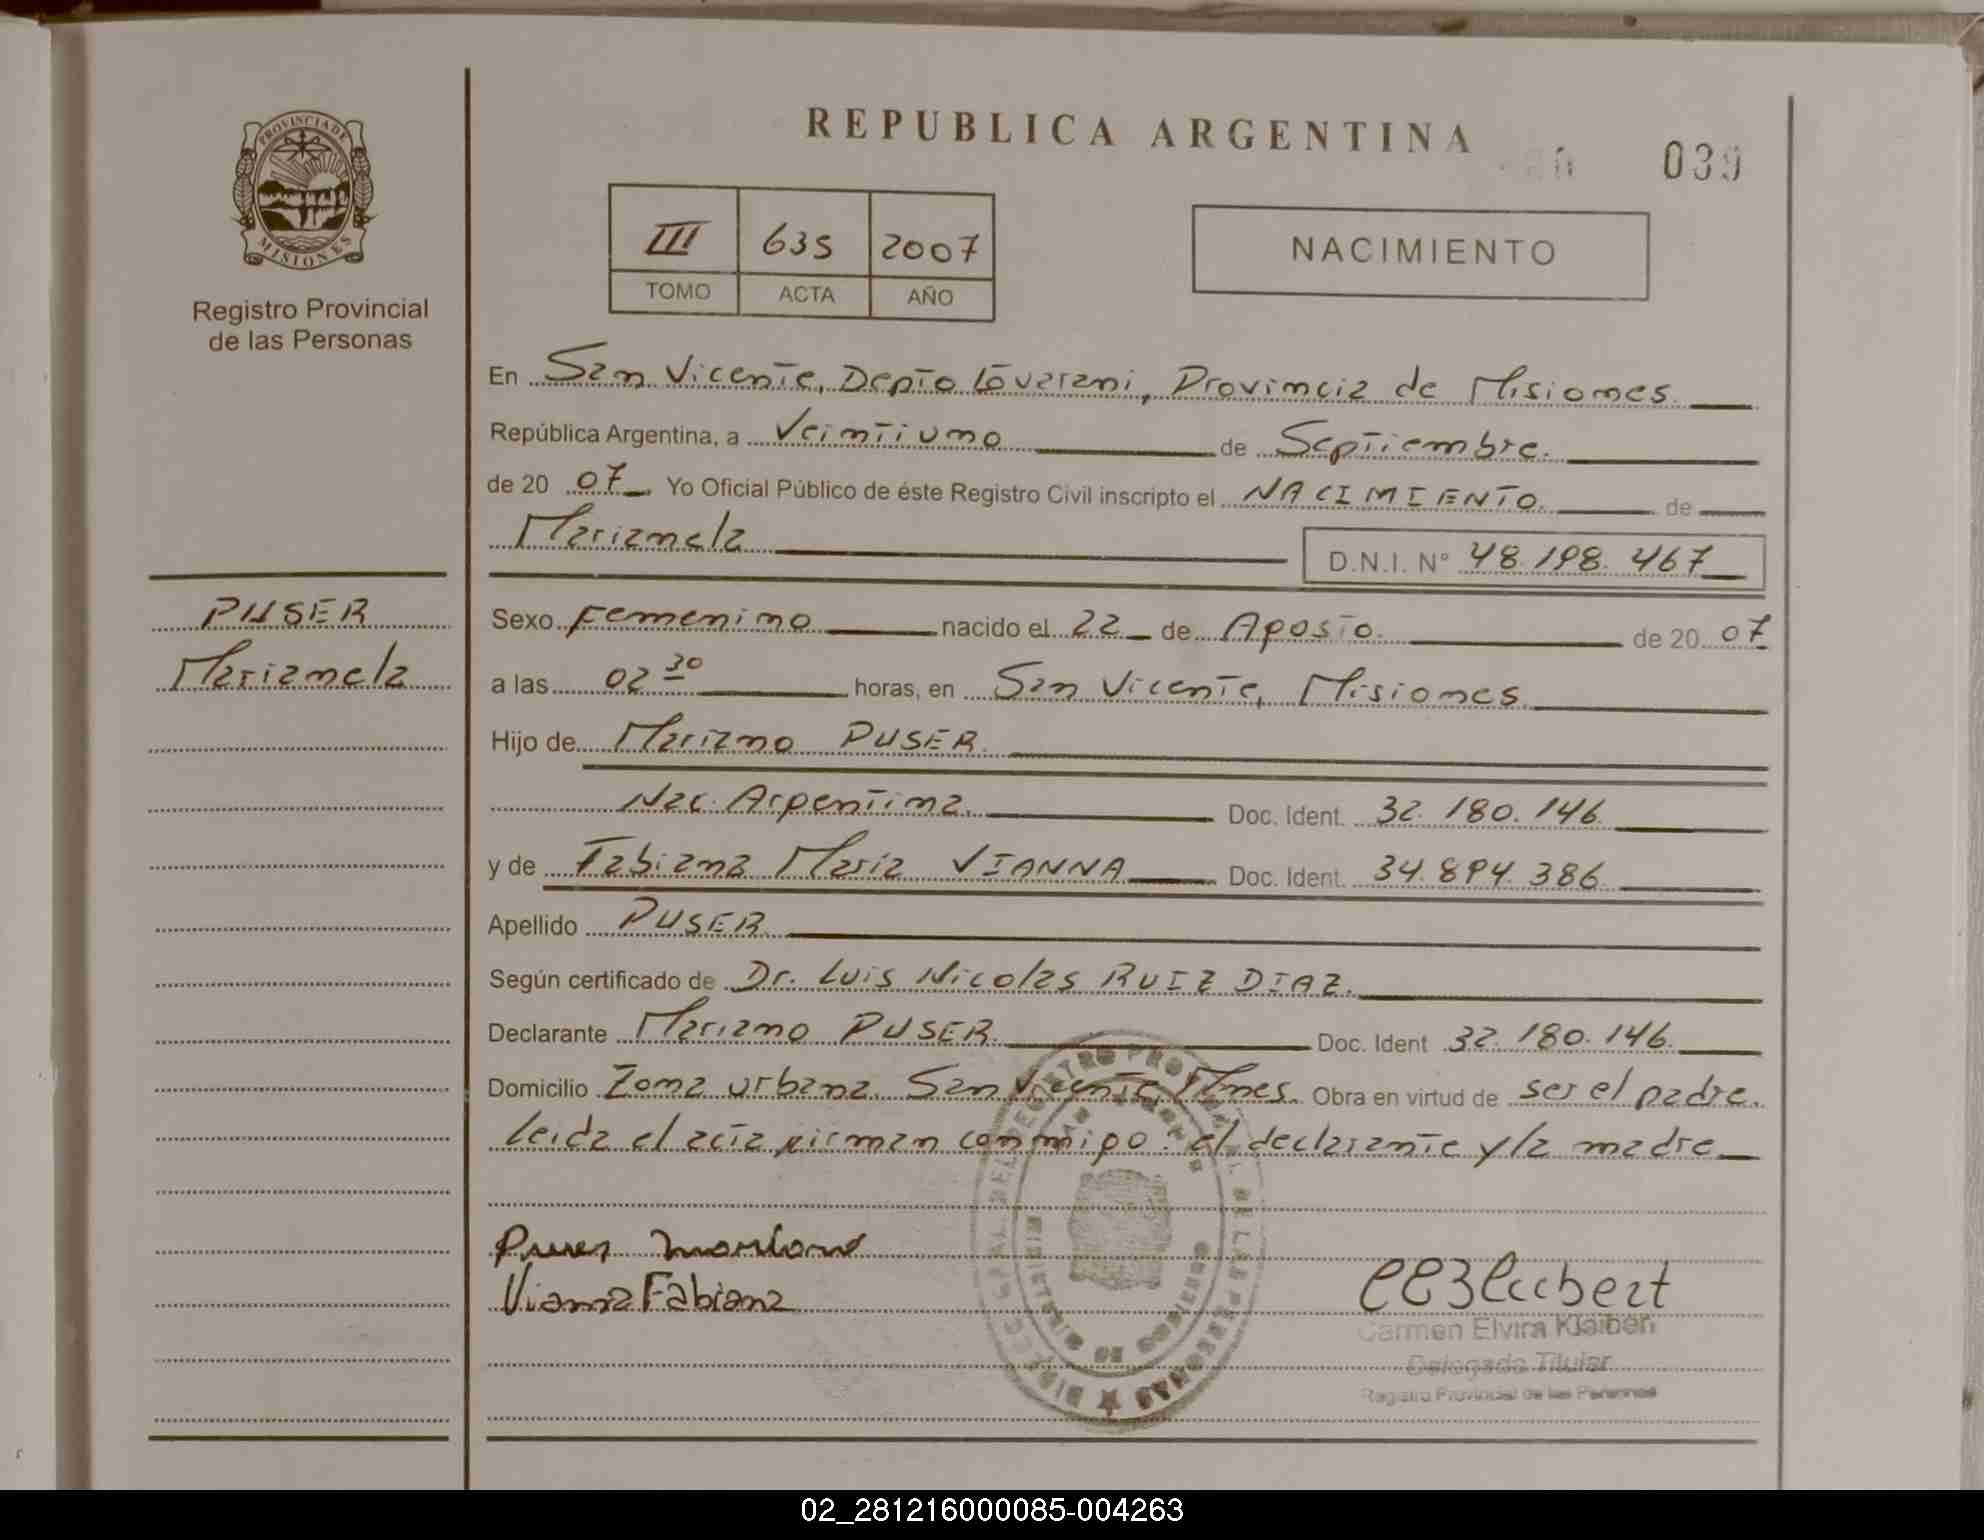 REPUBLICA ARGENTINA
039
PROVINCIA DE
MISIONES
Registro Provincial
de las Personas
III 635 2007
TOMO ACTA AÑO
NACIMIENTO
En San Vicente, Depto Guarani, Provincia de Misiones
República Argentina, a Veintiuno de Septiembre.
de 20 07 Yo Oficial Público de éste Registro Civil inscripto el NACIMIENTO. de
Marianela
D.N.I. Nº 48.198.467
PUSER
Marianela
Sexo Femenino nacido el 22 de Agosto. de 20 07
a las 02 30 horas, en San Vicente, Misiones.
Hijo de Mariano PUSER.
Nac. Argentina. Doc. Ident. 32.180.146.
y de Fabiana Maria VIANNA Doc. Ident. 34.894.386
Apellido PUSER
Según certificado de Dr. Luis Nicolas RUIZ DIAZ.
Declarante Mariano PUSER. Doc. Ident 32.180.146.
Domicilio Zona urbana. San Vicente, Mnes. Obra en virtud de ser el padre.
leida el acta firman conmigo: el declarante y la madre
Puser Mariano
Vianna Fabiana
Carmen Elvira Kleibert
Delegada Titular
Registro Provincial de las Personas
02_281216000085-004263